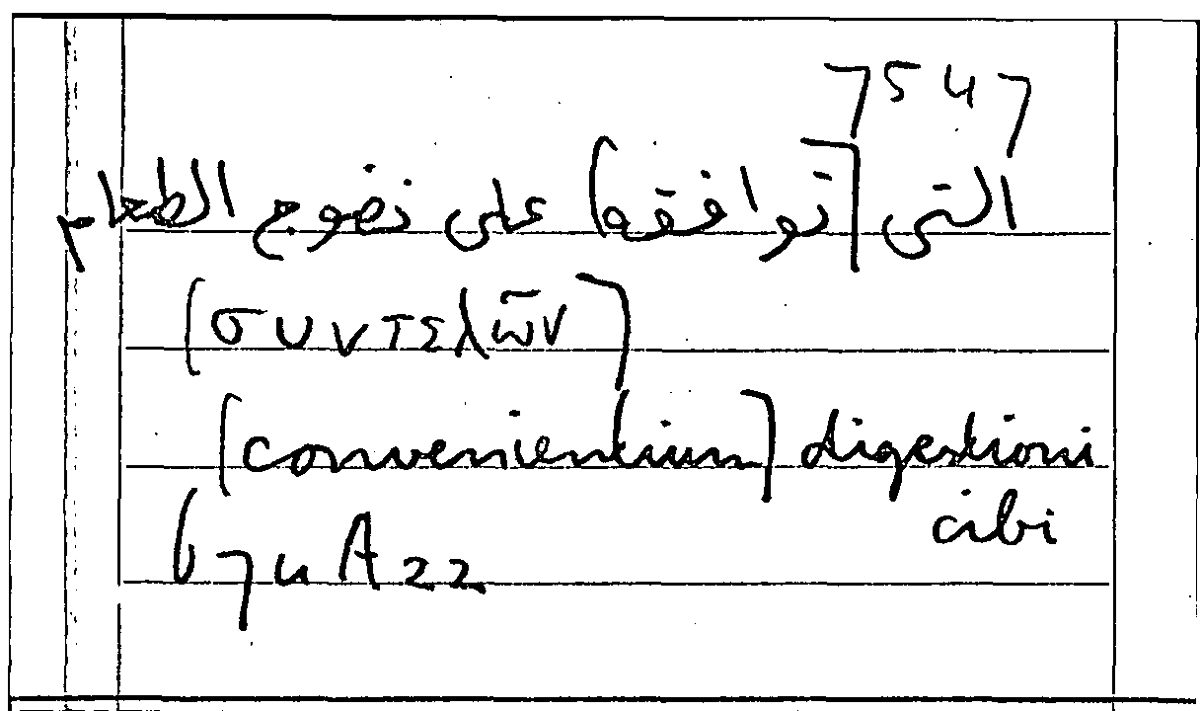 7547
التى [توافقه] على نضوج الطعام
[συντελῶν]
[convenientium] digestioni
cibi
674 A22